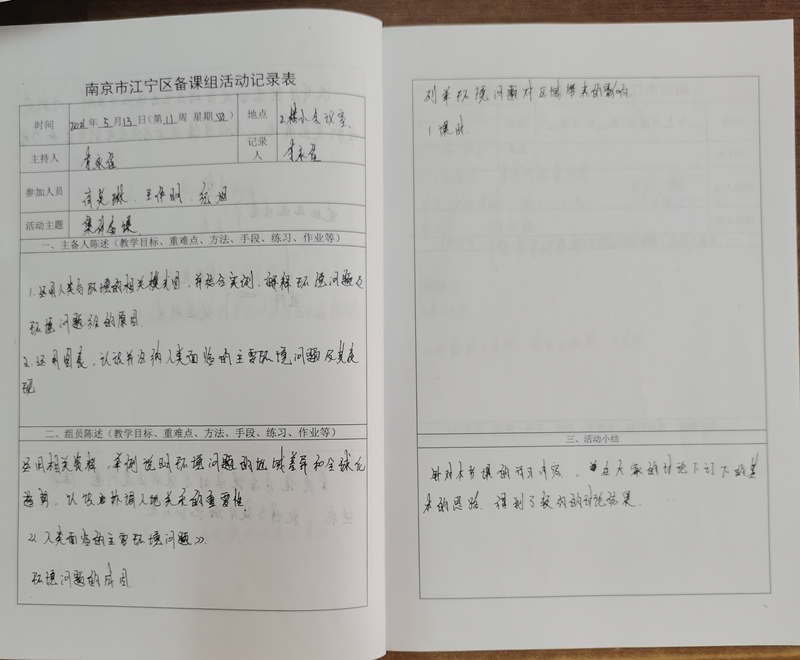 南京市江宁区备课组活动记录表
时间 年5月13日(第11周 星期) 地点 2楼小会议室
主持人 记录人
参加人员
活动主题 集体备课
一、主备人陈述(教学目标、重难点、方法、手段、练习、作业等)
1.运用人类与环境的相关模式图,并结合实例,解释环境问题及
环境问题的原因.
2.运用图表,认识并归纳人类面临的主要环境问题及其表
现
二、组员陈述(教学目标、重难点、方法、手段、练习、作业等)
运用相关资料,举例说明环境问题的地域差异和全球化
趋势,以及协调人地关系的重要性.
《人类面临的主要环境问题》.
环境问题的成因
列举环境问题对区域带来的影响.
1课时
三、活动小结
针对本节课的学习内容,在大家的讨论下订下的基
本的思路.得到了较好的讨论结果.